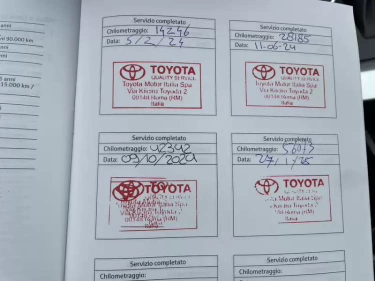 e 30.000 km
anni
5 anni
15.000 km /
Servizio completato
Chilometraggio: 14246
Data: 5/2/24
TOYOTA
QUALITY SERVICE
Toyota Motor Italia Spa
Via Kiiciro Toyoda 2
00148 Roma (RM)
Italia
Servizio completato
Chilometraggio: 28185
Data: 11-06-24
TOYOTA
QUALITY SERVICE
Toyota Motor Italia Spa
Via Kiiciro Toyoda 2
00148 Roma (RM)
Italia
Servizio completato
Chilometraggio: 42342
Data: 09/10/2024
TOYOTA
Italia Spa
Servizio completato
Chilometraggio:
Data: 27/1/25
TOYOTA
Motor Italia Spa
Toyoda 2
Roma (RM)
Italia
Servizio completato
Chilometraggio:
Servizio completato
Chilometraggio: